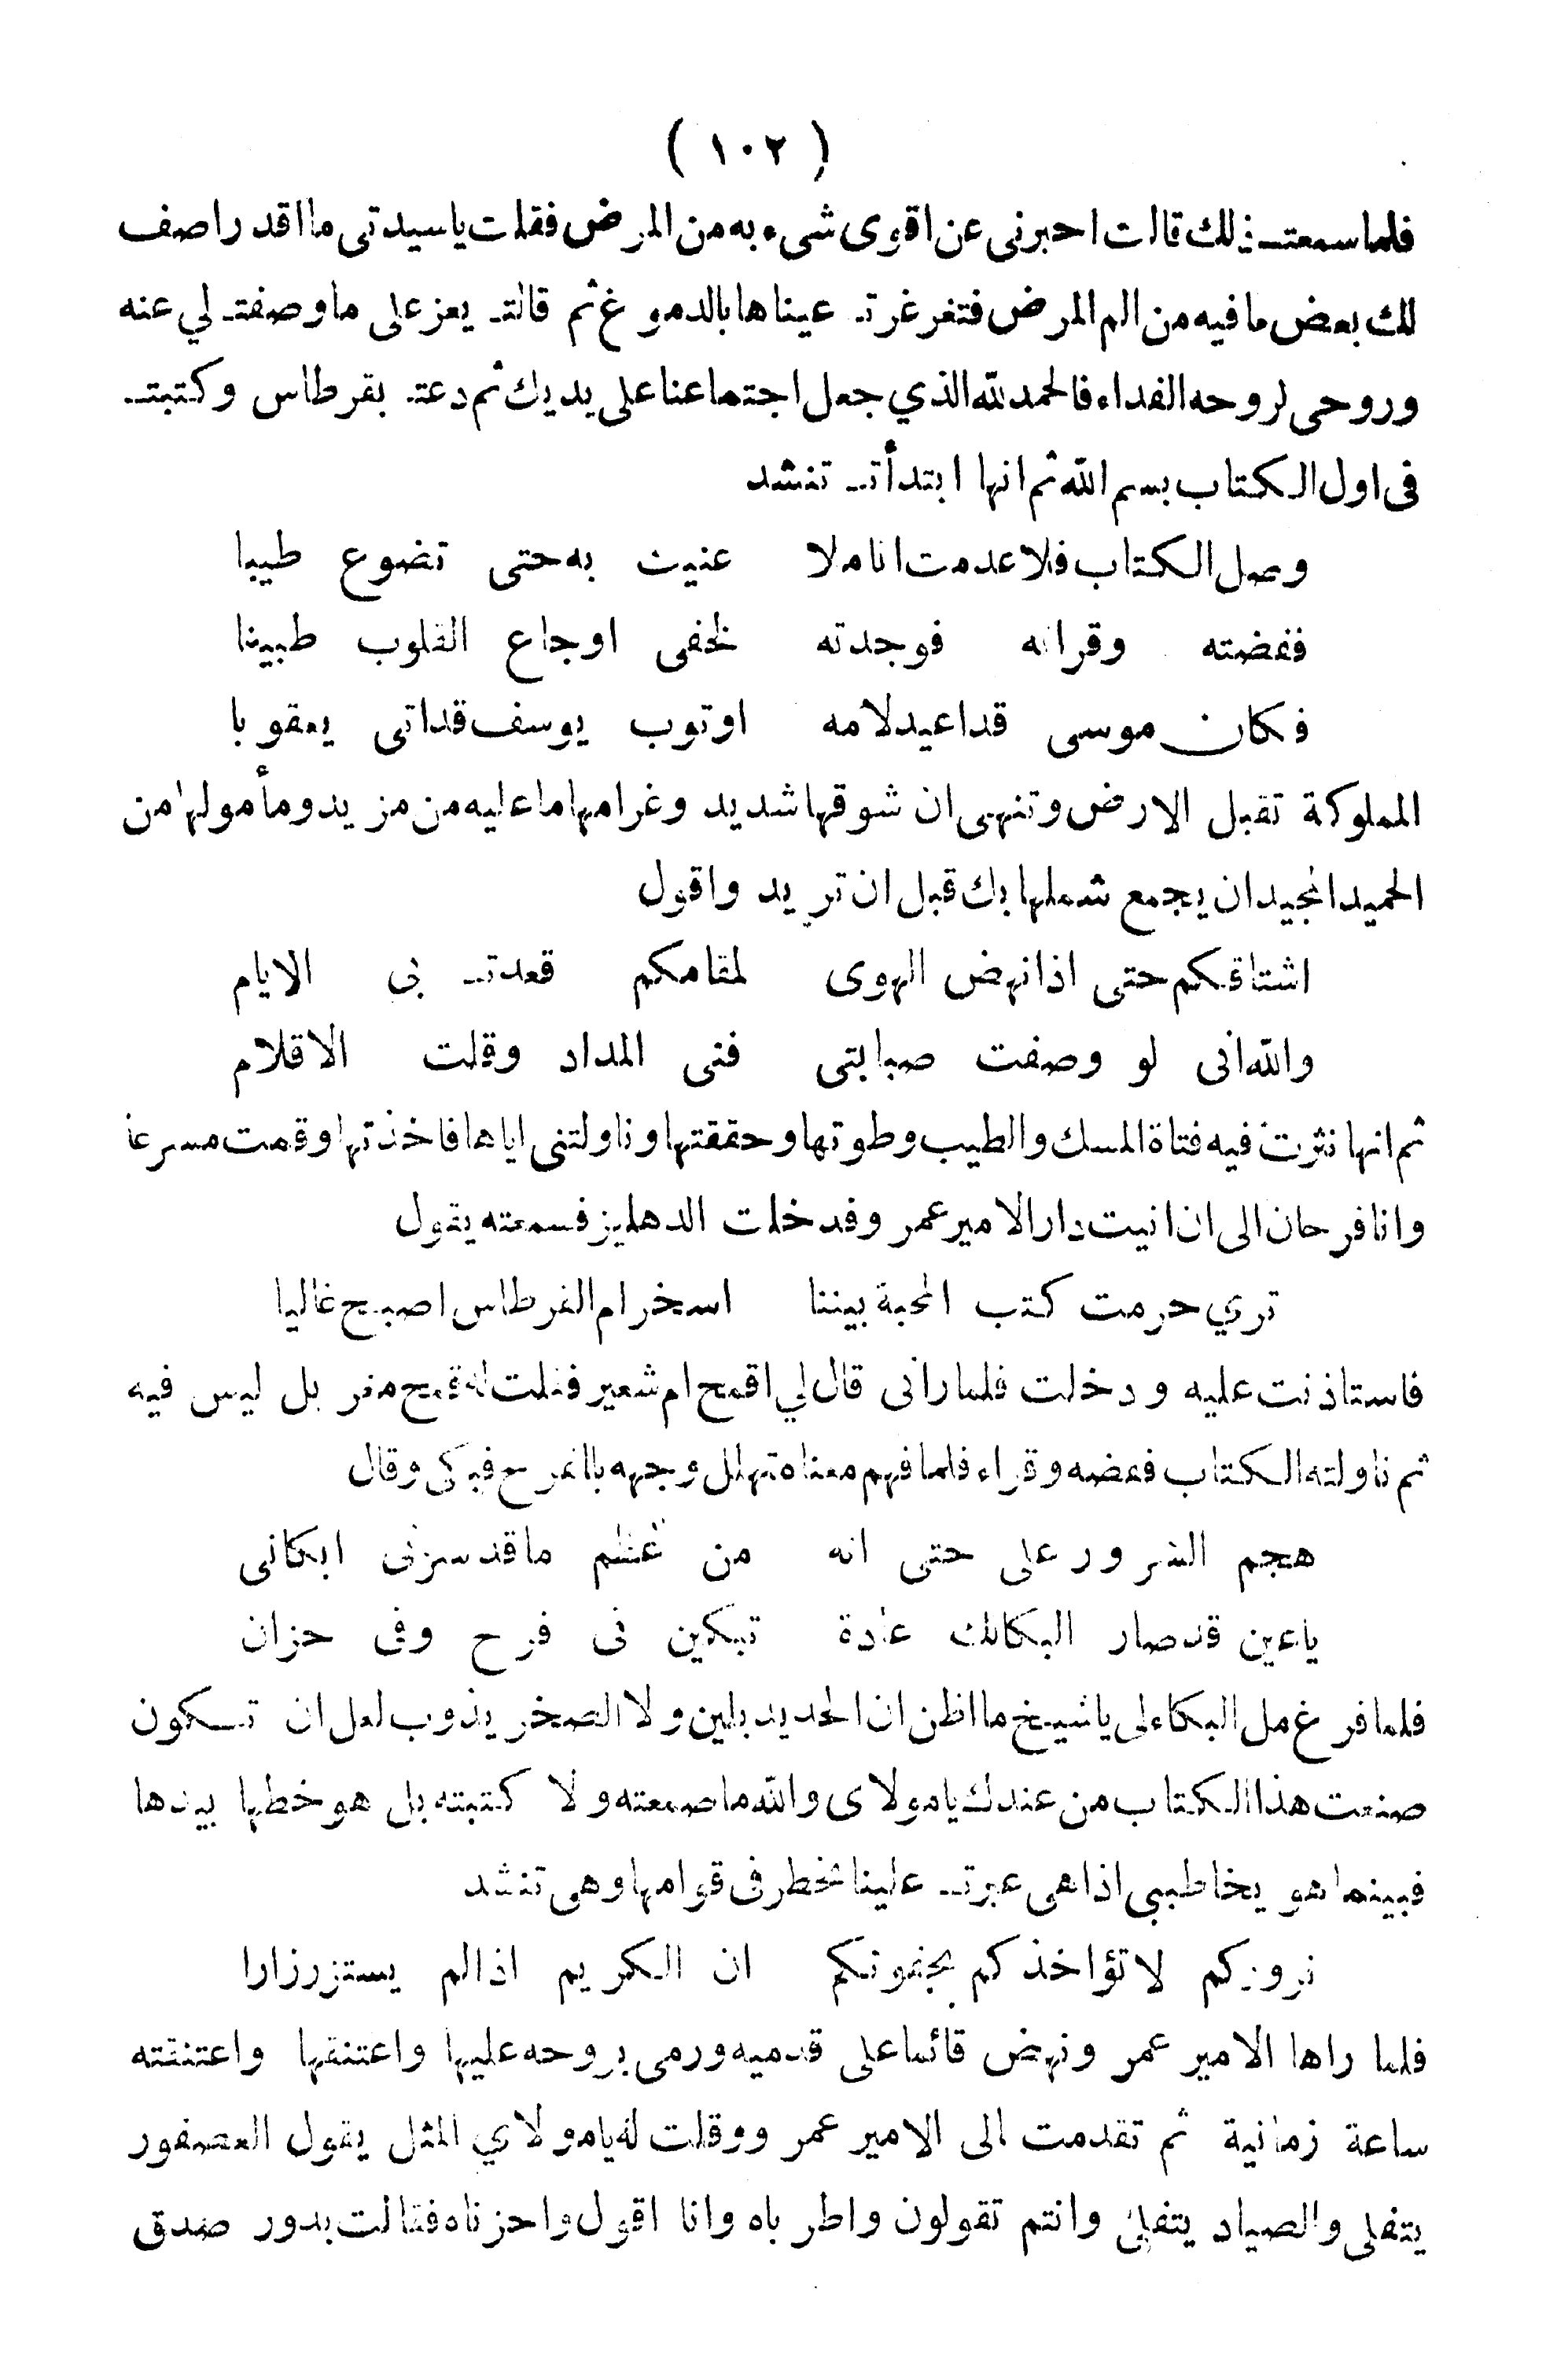 ( ١٠٢ )
فلما سمعت ذلك قالت احبرني عن اقوى شيء به من المرض فقلت يا سيدتى ما اقدر اصف
لك بعض ما فيه من الم المرض فتغرغرت عيناها بالدموع ثم قالت يعز على ما وصفت لي عنه
وروحى لروحه الفداء فالحمد لله الذي جعل اجتماعنا على يديك ثم دعت بقرطاس وكتبت
فى اول الكتاب بسم الله ثم انها ابتدأت تنشد
وصل الكتاب فلا عدمت اناملا عنيت به حتى تضوع طيبا
ففضته وقراته فوجدته لخفى اوجاع القلوب طبيبا
فكان موسى قد اعيد لامه او توب يوسف قد اتى يعقوبا
المملوكة تقبل الارض وتنهى ان شوقها شديد وغرامها ما عليه من مزيد ومأمولها من
الحميد المجيد ان يجمع شملها بك قبل ان تريد واقول
اشتاقكم حتى اذا نهض الهوى لمقامكم قعدت بى الايام
والله انى لو وصفت صبابتى فنى المداد وقلت الاقلام
ثم انها نثرت فيه فتاة المسك والطيب وطوتها وحققتها وناولتنى اياها فاخذتها وقمت مسرعا
وانا فرحان الى ان اتيت دار الامير عمر وقد خلت الدهليز فسمعته يقول
تري حرمت كتب المحبة بيننا اسخرام القرطاس اصبح غاليا
فاستاذنت عليه ودخلت فلما رانى قال لي اقمح ام شعير فقلت له قمح مغر بل ليس فيه
ثم ناولته الكتاب ففضه وقراء فلما فهم معناه تهلل وجهه بالفرح فبكى وقال
هجم السرور على حتى انه من عظم ما قد سرنى ابكانى
يا عين قد صار البكالك عادة تبكين فى فرح وفى حزان
فلما فرغ مل البكاء لى يا شيخ ما اظن ان الحديد بلين ولا الصخر يذوب لعل ان تكون
صنعت هذا الكتاب من عندك يا مولاى والله ما صنعته ولا كتبته بل هو خطها بيدها
فبينما هو يخاطبى اذا هى عبرت علينا تخطر فى قوامها وهى تنشد
نروركم لا تؤاخذكم بجفونكم ان الكريم اذا لم يستزر زارا
فلما راها الامير عمر ونهض قائما على قدميه ورمى بروحه عليها واعتنقها واعتنقته
ساعة زمانية ثم تقدمت الى الامير عمر ووقلت له يا مولاي المثل يقول العصفور
يتفلى والصياد يتقلى وانتم تقولون واطرباه وانا اقول واحزناه فقالت بدور صدق